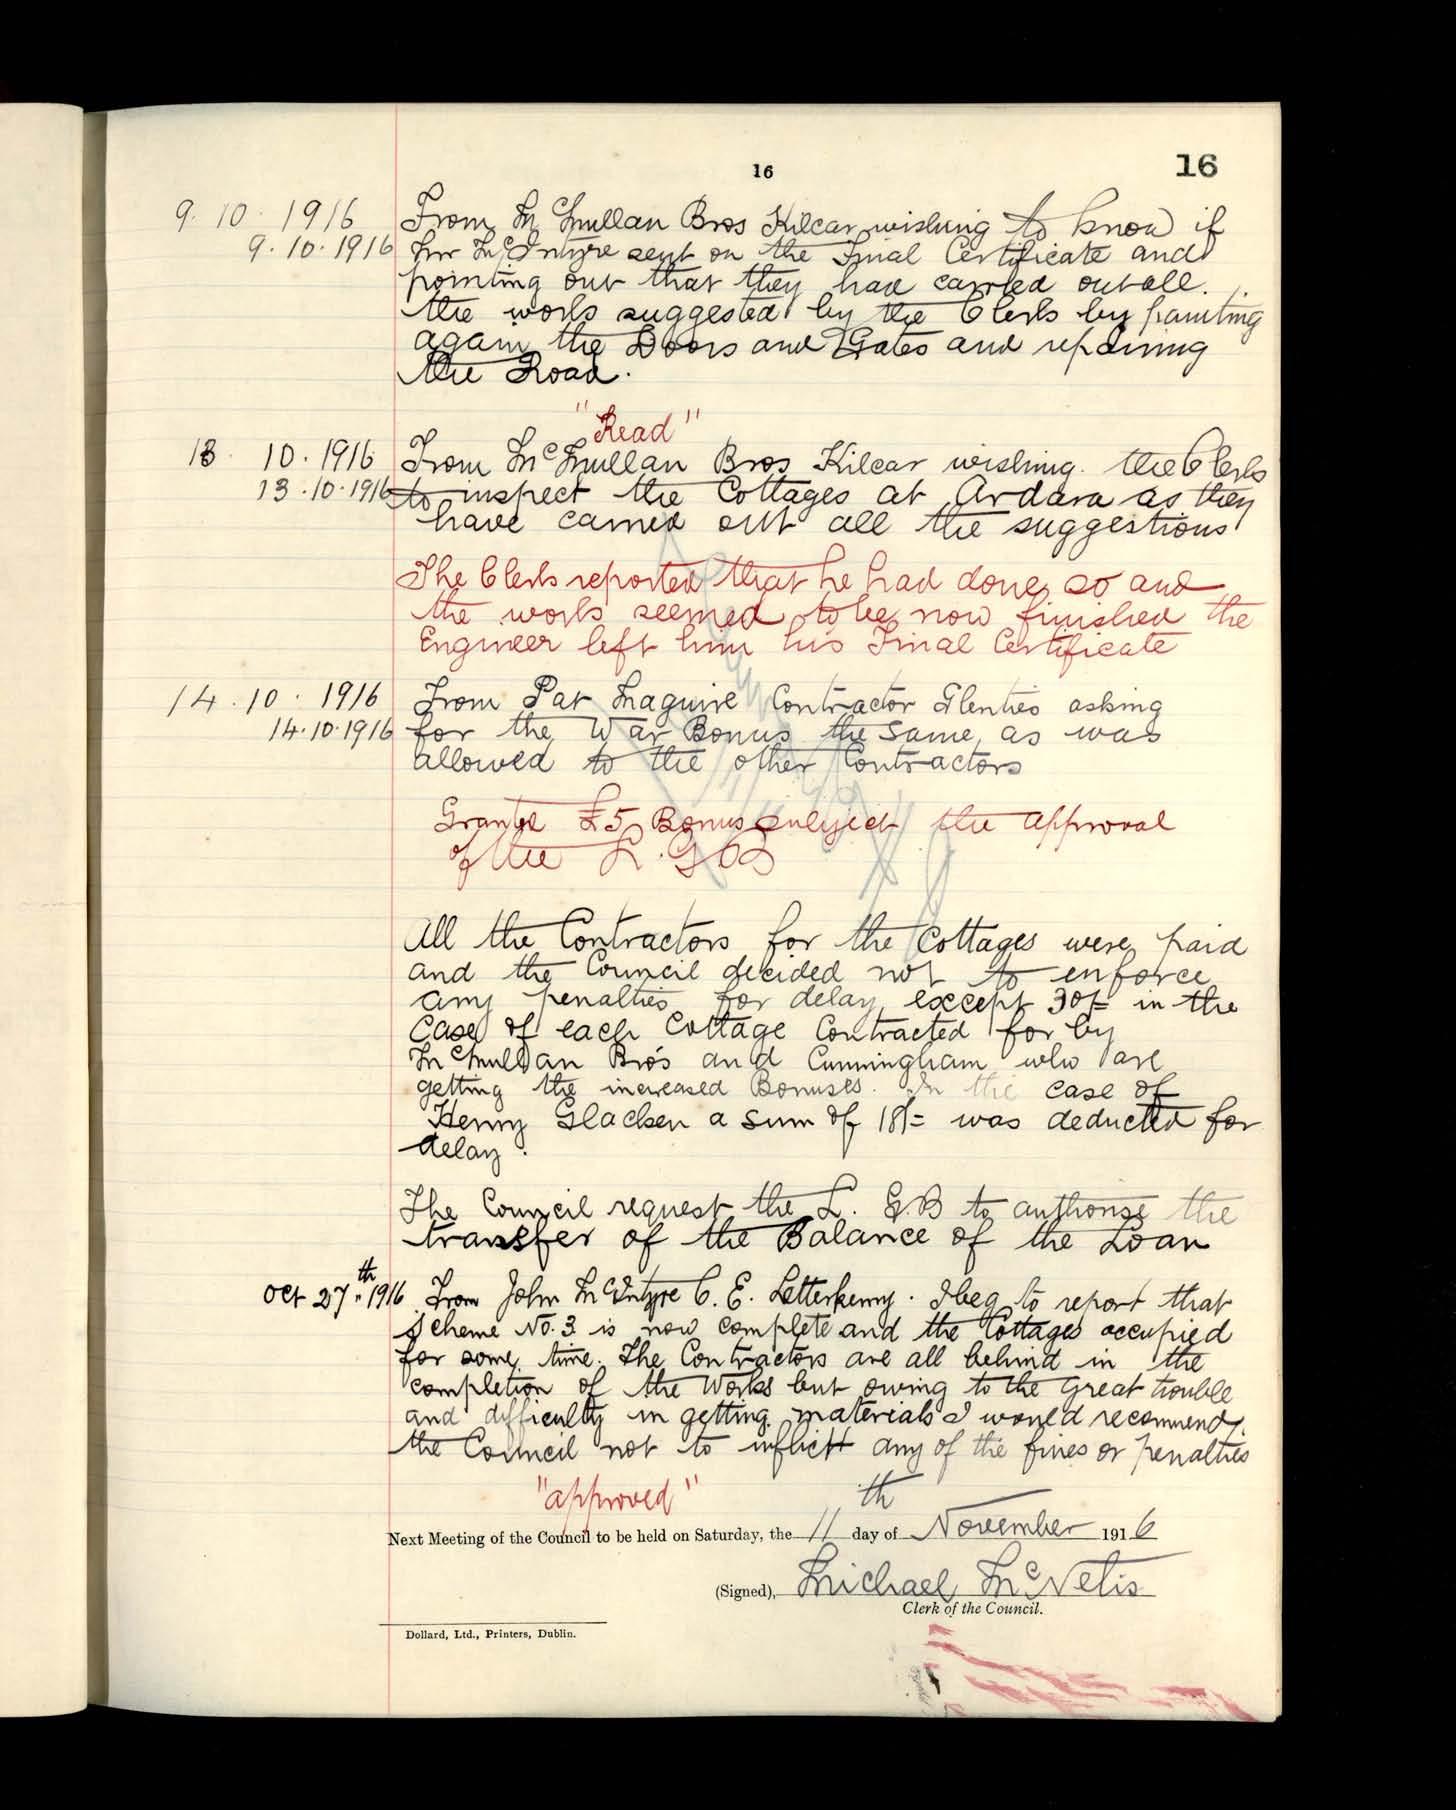 16
16
9. 10. 1916 From McMullan Bros Kilcar wishing to know if
9.10.1916 Mr McIntyre sent on the Final Certificate and
pointing out that they had carried out all.
the work suggested by the Clerk by painting
again the Doors and Gates and repairing
the Road.
"Read"
13. 10. 1916 From McMullan Bros Kilcar wishing the Clerk
13.10.1916 to inspect the Cottages at Ardara as they
have carried out all the suggestions
The Clerk reported that he had done so and
the work seemed to be now finished the
Engineer left him his Final Certificate
14. 10. 1916 From Pat Maguire Contractor Glenties asking
14.10.1916 for the War Bonus the same as was
allowed to the other Contractors
Granted £5 Bonus subject the approval
of the L.G.B
All the Contractors for the Cottages were paid
and the Council decided not to enforce
any penalties for delay except 30/= in the
Case of each Cottage Contracted for by
McMullan Bro's and Cunningham who are
getting the increased Bonuses. In the case of
Henry Glacken a sum of 18/= was deducted for
delay.
The Council request the L. G.B to authorise the
transfer of the Balance of the Loan
Oct 27th 1916 From John McIntyre C. E. Letterkenny. I beg to report that
Scheme No. 3 is now complete and the Cottages occupied
for some time. The Contractors are all behind in the
completion of the Works but owing to the great trouble
and difficulty in getting materials I would recommend
the Council not to inflict any of the fines or penalties
"approved"
Next Meeting of the Council to be held on Saturday, the 11th day of November 1916
(Signed), Michael McNelis
Clerk of the Council.
Dollard, Ltd., Printers, Dublin.